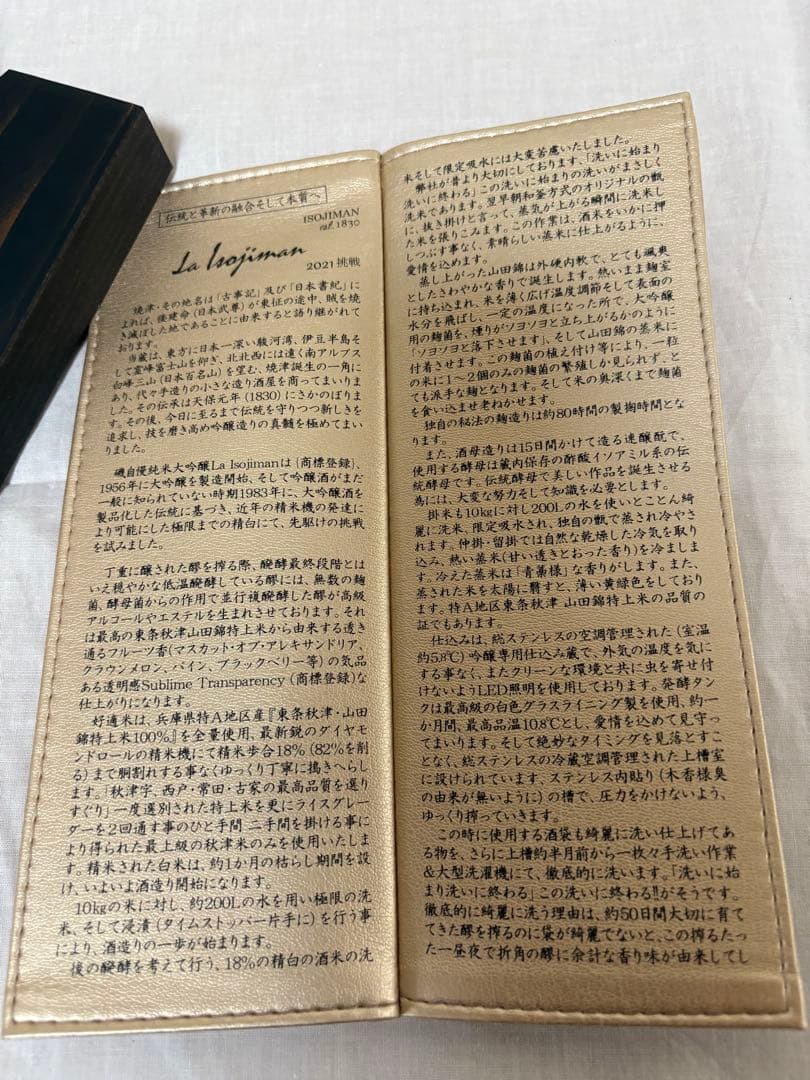 伝統と革新の融合そして本質へ
ISOJIMAN
est. 1830
La Isojiman
2021 挑戦
焼津・その地名は「古事記」及び「日本書紀」に
よれば、倭建命(日本武尊)が東征の途中、賊を焼
き滅ぼした地であることに由来すると語り継がれて
おります。
当蔵は、東方に日本一深い駿河湾、伊豆半島そ
して霊峰富士山を仰ぎ、北北西には遠く南アルプス
白峰三山(日本百名山)を望む、焼津誕生の一角に
あり、代々手造りの小さな造り酒屋を商ってまいりま
した。その伝承は天保元年(1830)にさかのぼりま
す。その後、今日に至るまで伝統を守りつつ新しきを
追求し、技を磨き高め吟醸造りの真髄を極めてまい
りました。
磯自慢純米大吟醸La Isojimanは{商標登録}、
1956年に大吟醸を製造開始、そして吟醸酒がまだ
一般に知られていない時期1983年に、大吟醸酒を
製品化した伝統に基づき、近年の精米機の発達に
より可能にした極限までの精白にて、先駆けの挑戦
を試みました。
丁重に醸された醪を搾る際、醗酵最終段階とは
いえ穏やかな低温醗酵している醪には、無数の麹
菌、酵母菌からの作用で並行複醗酵した醪が高級
アルコールやエステルを生まれさせております。それ
は最高の東条秋津山田錦特上米から由来する透き
通るフルーツ香(マスカット・オブ・アレキサンドリア、
クラウンメロン、パイン、ブラックベリー等)の気品
ある透明感Sublime Transparency(商標登録)な
仕上がりになります。
好適米は、兵庫県特A地区産『東条秋津・山田
錦特上米100%』を全量使用、最新鋭のダイヤモ
ンドロールの精米機にて精米歩合18%(82%を削
る)まで胴割れする事なくゆっくり丁寧に搗きへらし
ます。「秋津字、西戸・常田・古家の最高品質を選り
すぐり」一度選別された特上米を更にライスグレー
ダーを2回通す事のひと手間 二手間を掛ける事に
より得られた最上級の秋津米のみを使用いたしま
す。精米された白米は、約1か月の枯らし期間を設
け、いよいよ酒造り開始になります。
10kgの米に対し、約200Lの水を用い極限の洗
米、そして浸漬(タイムストッパー片手に)を行う事
により、酒造りの一歩が始まります。
後の醗酵を考えて行う、18%の精白の酒米の洗
米そして限定吸水には大変苦慮いたしました。
弊社が昔より大切にしております、「洗いに始まり
洗いに終わる」この洗いに始まりの洗いがまさしく
洗米であります。翌早朝和釜方式のオリジナルの甑
に、抜き掛けと言って、蒸気が上がる瞬間に洗米し
た米を張りこみます。この作業は、酒米をいかに押
しつぶす事なく、素晴らしい蒸米に仕上がるように、
愛情を込めます。
蒸し上がった山田錦は外硬内軟で、とても颯爽
としたさわやかな香りで誕生します。熱いまま麹室
に持ち込まれ、米を薄く広げ温度調節そして表面の
水分を飛ばし、一定の温度になった所で、大吟醸
用の麹菌を、煙りがソヨソヨと立ち上がるかのように
「ソヨソヨと落下させます」、そして山田錦の蒸米に
付着させます。この麹菌の植え付け等により、一粒
の米に1〜2個のみの麹菌の繁殖しか見られず、と
ても派手な麹となります。そして米の奥深くまで麹菌
を食い込ませ老ねかせます。
独自の秘法の麹造りは約80時間の製麹時間とな
ります。
また、酒母造りは15日間かけて造る速醸酛で、
使用する酵母は蔵内保存の酢酸イソアミル系の伝
統酵母です。伝統酵母で美しい作品を誕生させる
為には、大変な努力そして知識を必要とします。
掛米も10kgに対し200Lの水を使いとことん綺
麗に洗米、限定吸水され、独自の甑で蒸され冷やさ
れます。仲掛・留掛では自然な乾燥した冷気を取り
込み、熱い蒸米(甘い透きとおった香り)を冷ましま
す。冷えた蒸米は「青藁様」な香りがします。また、
蒸された米を太陽に翳すと、薄い黄緑色をしており
ます。特A地区東条秋津 山田錦特上米の品質の
証でもあります。
仕込みは、総ステンレスの空調管理された(室温
約5.8℃)吟醸専用仕込み蔵で、外気の温度を気に
する事なく、またクリーンな環境と共に虫を寄せ付
けないようLED照明を使用しております。発酵タン
クは最高級の白色グラスライニング製を使用、約一
か月間、最高品温10.8℃とし、愛情を込めて見守っ
てまいります。そして絶妙なタイミングを見落とすこ
となく、総ステンレスの冷蔵空調管理された上槽室
に設けられています、ステンレス内貼り(木香様臭
の由来が無いように)の槽で、圧力をかけないよう、
ゆっくり搾っていきます。
この時に使用する酒袋も綺麗に洗い仕上げてあ
る物を、さらに上槽約半月前から一枚々手洗い作業
&大型洗濯機にて、徹底的に洗います。「洗いに始
まり洗いに終わる」この洗いに終わる!!がそうです。
徹底的に綺麗に洗う理由は、約50日間大切に育て
てきた醪を搾るのに袋が綺麗でないと、この搾るたっ
た一昼夜で折角の醪に余計な香り味が由来してし